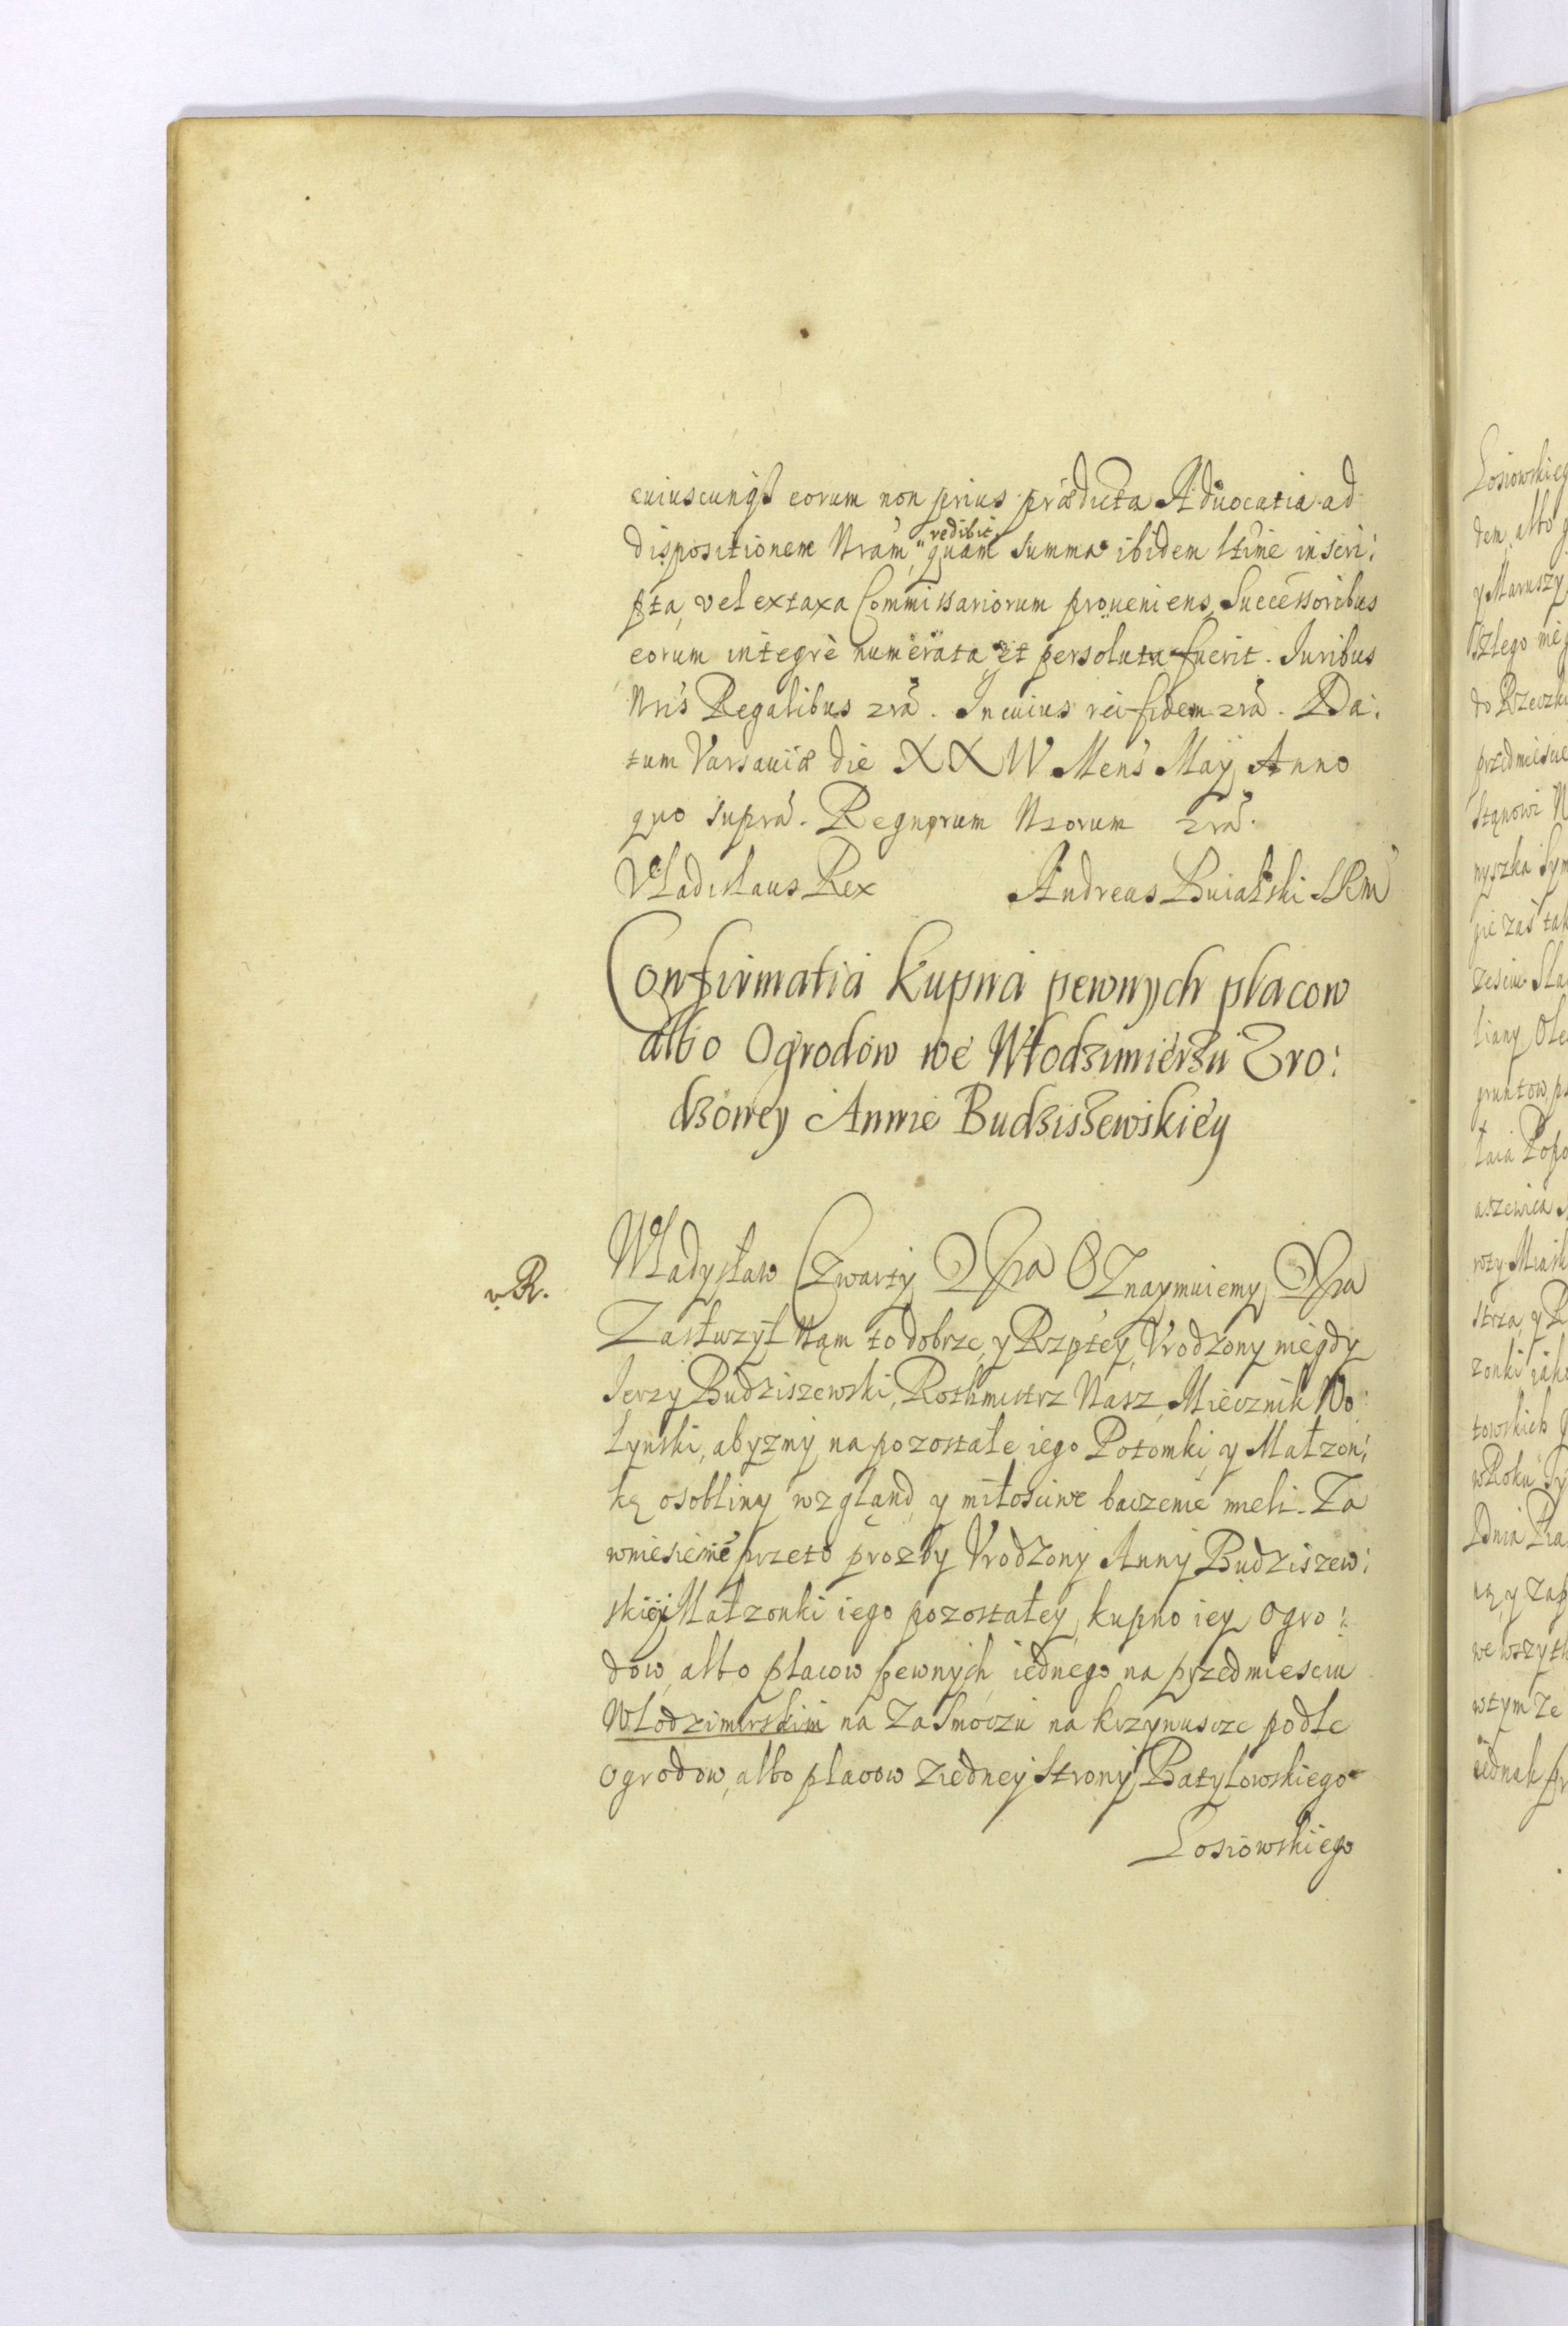 cuiuscunqß eorum non prius prædicta Aduocatia ad
dispositionem Nram, redibit, quam summa ibidem ltime inscri:
pta, vel ex taxa Commissariorum proueniens, Successoribus
eorum integrè numerata et persoluta fuerit. Iuribus
Nris Regalibus zra. In cuius rei fidem zra. Da:
tum Varsauiæ die XXIV Mens Maÿ Anno
quo supra. Regnorum Nrorum zra.
Vladislaus Rex Andreas Buialski SRM
Confirmatia kupna pewnych placow
albo Ogrodow we Włodzimierzu Vro:
dzoney Annie Budziszewskiey
v. R.
Władysław Czwarty Oznaymuiemy
Zasłużył Nam to dobrze, y Rzptey, Vrodzony niegdy
Ierzy Budziszewski, Rothmistrz Nasz, Miecznik Wo:
łynski, abyzmy na pozostałe iego Potomki, y Małzon:
kę osobliwy wzgląnd, y miłosciwe baczenie mieli. Za
wniesieniē przeto prozby Vrodzony Anny Budziszew:
skiey Małzonki iego pozostałey, kupno iey Ogro:
dow, albo placow pewnych, iednego na przedmiesciu
Włodzimirskim na Zasmoczu na krzynuscze, podle
Ogrodow, albo placow ziedney strony Batylowskiego
Losiowskiego
Losiowskieg
dem, albo
y Maruszy
do Rzeczk
przedmiescie
nyszka Sym
gruntow
zonki iako
w Roku
Dnia
we wszyth
w tym ze
iednak pr